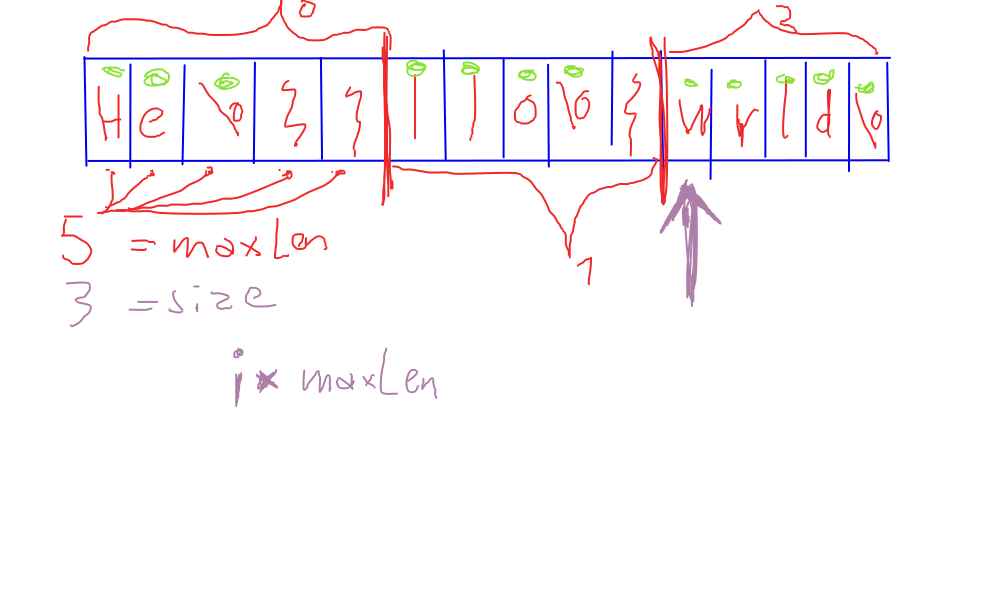 0 2
H e \0 } } l l o \0 } w r l d \0
1
5 = maxLen
3 = size
i * maxLen